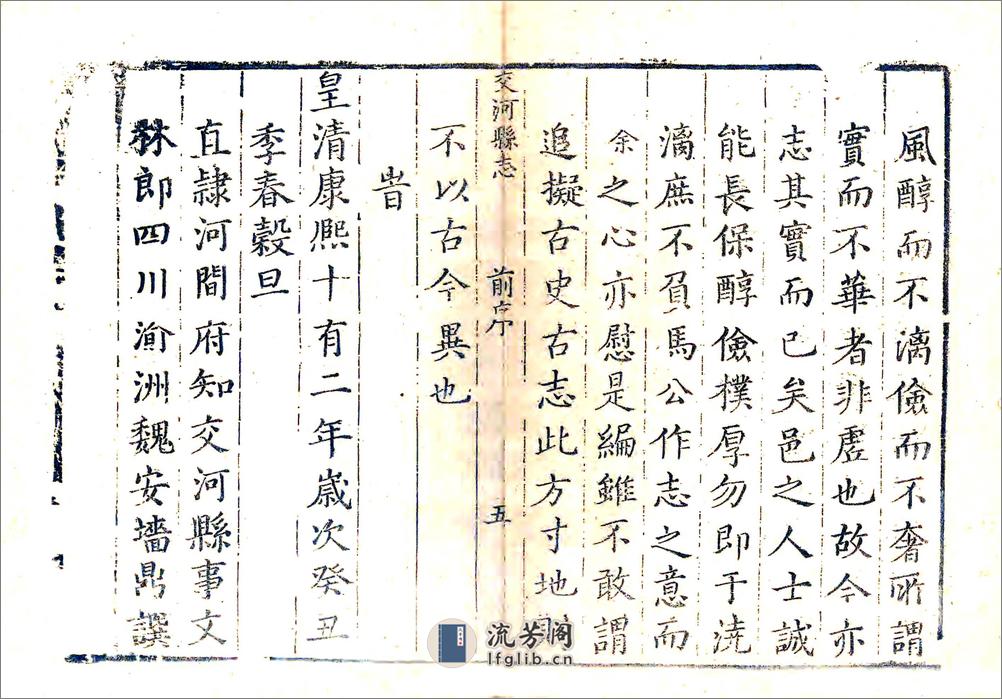 風醇而不漓儉而不奢所謂
實而不華者非虛也故今亦
志其實而已矣邑之人士誠
能長保醇儉樸厚勿即于澆
漓庶不負馬公作志之意而
余之心亦慰是編雖不敢謂
追擬古史古志此方寸地
交河縣志 前序 五
不以古今異也
旹
皇清康熙十有二年歲次癸丑
季春穀旦
直隸河間府知交河縣事文
林郎四川渝洲魏安墻鼎譔
流芳阁
lfglib.cn